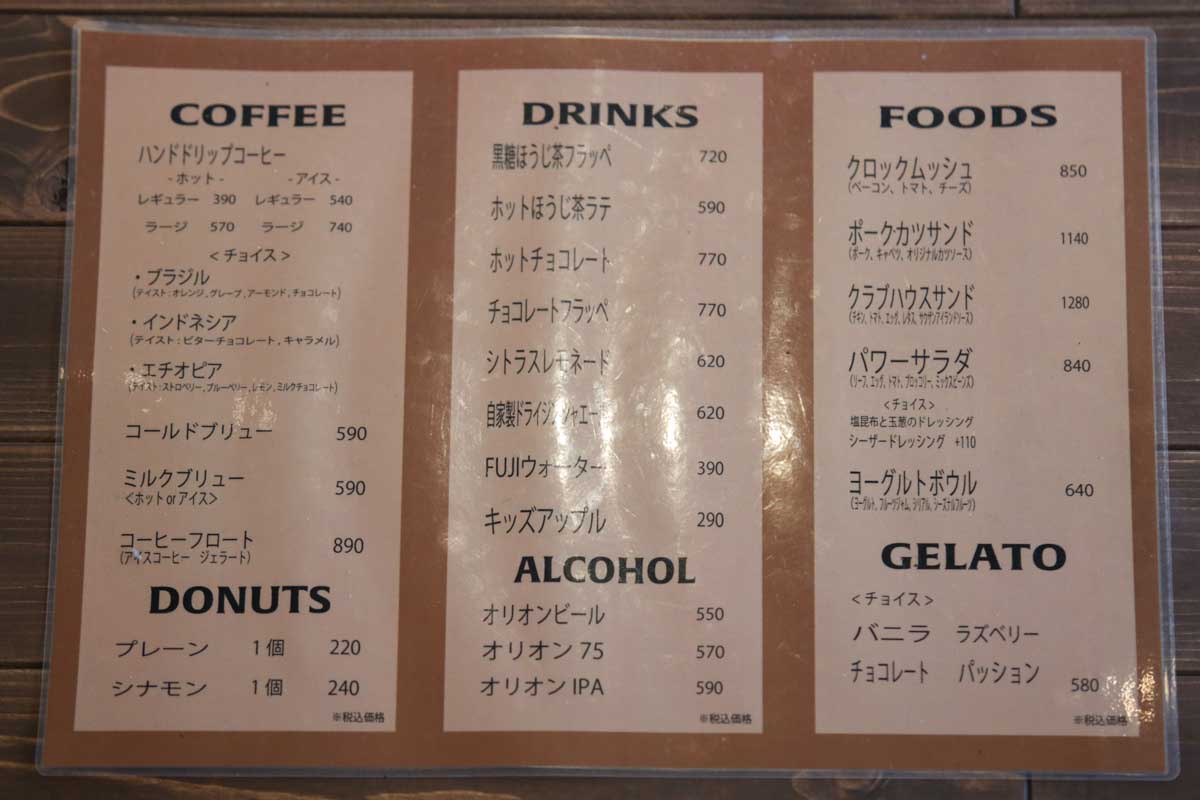 COFFEE
ハンドドリップコーヒー
- ホット - - アイス -
レギュラー 390 レギュラー 540
ラージ 570 ラージ 740
<チョイス>
・ブラジル
(テイスト:オレンジ,グレープ,アーモンド,チョコレート)
・インドネシア
(テイスト:ビターチョコレート,キャラメル)
・エチオピア
(テイスト:ストロベリー,ブルーベリー,レモン,ミルクチョコレート)
コールドブリュー 590
ミルクブリュー 590
<ホット or アイス>
コーヒーフロート 890
(アイスコーヒー ジェラート)
DONUTS
プレーン 1個 220
シナモン 1個 240
※税込価格
DRINKS
黒糖ほうじ茶フラッペ 720
ホットほうじ茶ラテ 590
ホットチョコレート 770
チョコレートフラッペ 770
シトラスレモネード 620
自家製ドライジンジャエール 620
FUJIウォーター 390
キッズアップル 290
ALCOHOL
オリオンビール 550
オリオン 75 570
オリオン IPA 590
※税込価格
FOODS
クロックムッシュ 850
(ベーコン、トマト、チーズ)
ポークカツサンド 1140
(ポーク、キャベツ、オリジナルカツソース)
クラブハウスサンド 1280
(チキン、トマト、エッグ、レタス、サウザンアイランドソース)
パワーサラダ 840
(リーフ、エッグ、トマト、ブロッコリー、ミックスビーンズ)
<チョイス>
塩昆布と玉葱のドレッシング
シーザードレッシング +110
ヨーグルトボウル 640
(ヨーグルト、フルーツジャム、シリアル、シーズナルフルーツ)
GELATO
<チョイス>
バニラ ラズベリー
チョコレート パッション 580
※税込価格